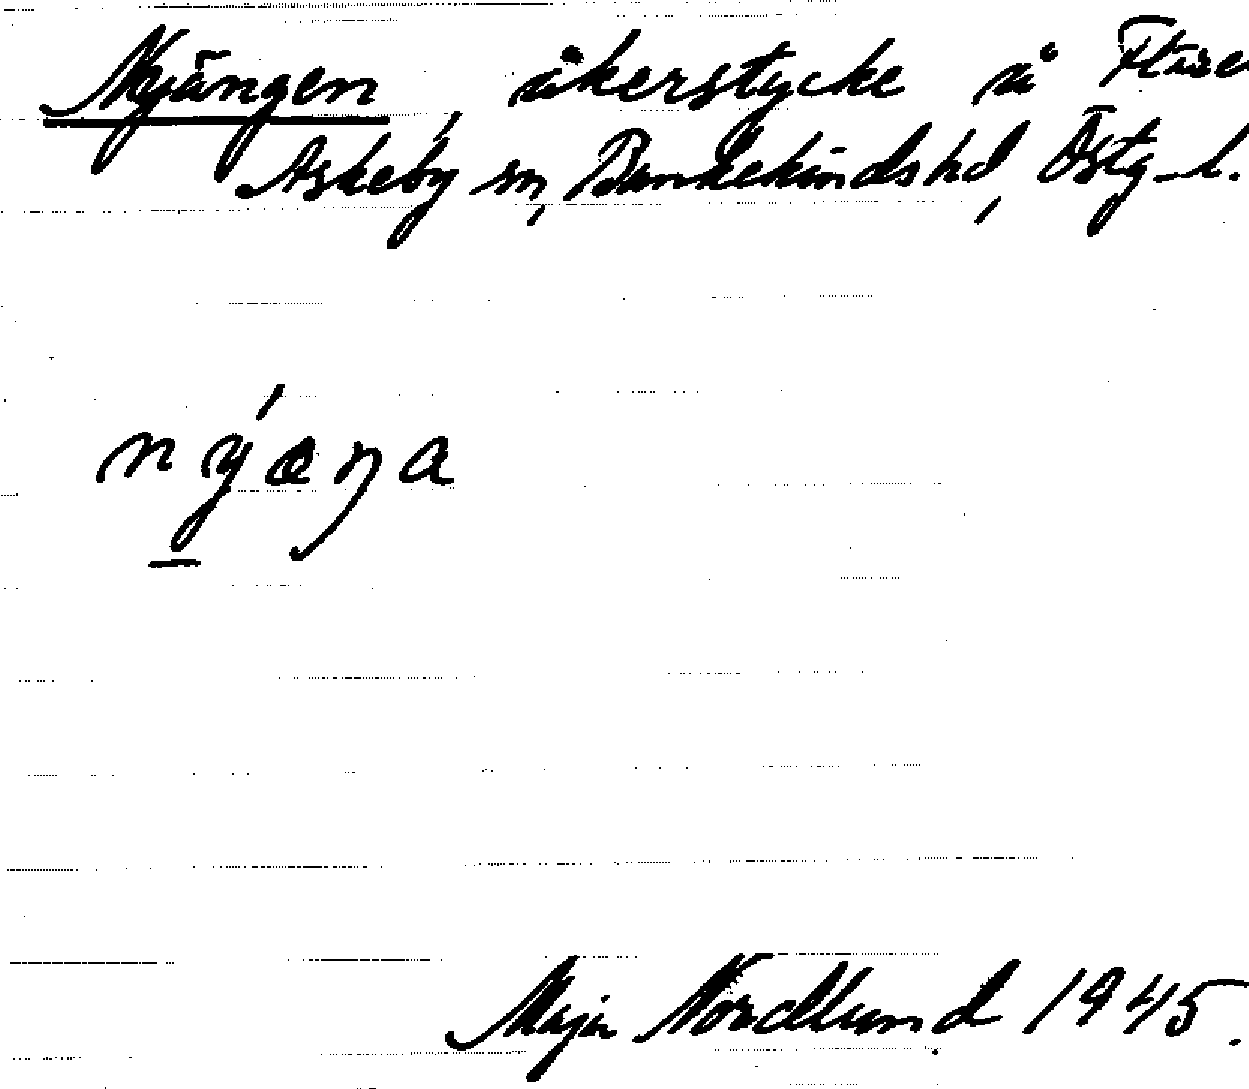 Nyängen, åkerstycke å
Askeby sn, Bankekinds hd, Östg-l.
nýæŋa
Maja Nordlund 1945.